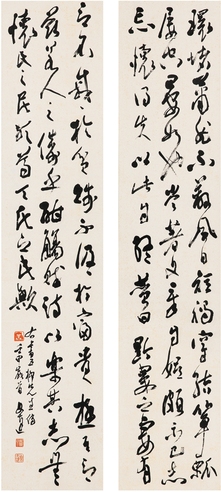 環堵蕭然不蔽風日短褐穿結簞瓢
屢空晏如也常著文章自娛頗示己志
忘懷得失以此自終贊曰黔婁之妻有
言不戚戚於貧賤不汲汲於富貴極其言
茲若人之儔乎酣觴賦詩以樂其志無
懷氏之民歟葛天氏之民歟
右書五柳先生傳